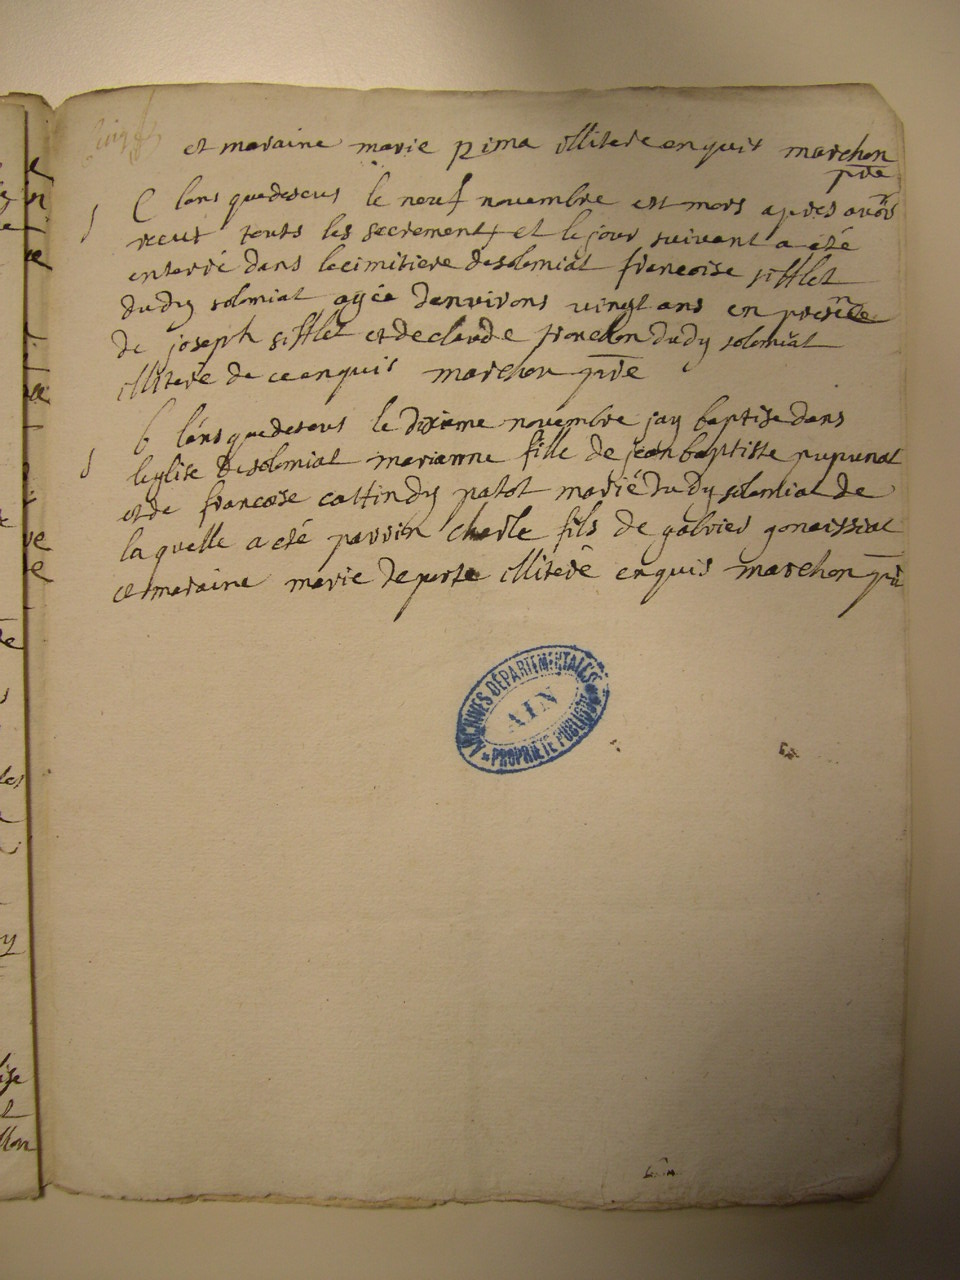 et maraine marie pima illitere enquis marchon
pre
S
C lans que desus le neuf novembre est mors apres avoir
receut touts les secrements et le jour suivant a été
enterré dans le cimitiere de solomiat francoise sifflet
du dy solomiat agée denvirons vingt ans en presēce
de joseph sifflet et de claude fronchon du dy solomiat
illiteré de ce enquis marchon pre
S
b lans que desus le dixieme novembre jay baptise dans
leglise de solomiat marianne fille de jean baptiste pupunat
et de francoise cattin dy patot marié du dy solomiat de
la quelle a eté parrin charle fils de gabriel gonaissiat
et maraine marie de porte illiteré enquis marchon pre
ARCHIVES DÉPARTEMENTALES
AIN
* PROPRIÉTÉ PUBLIQUE